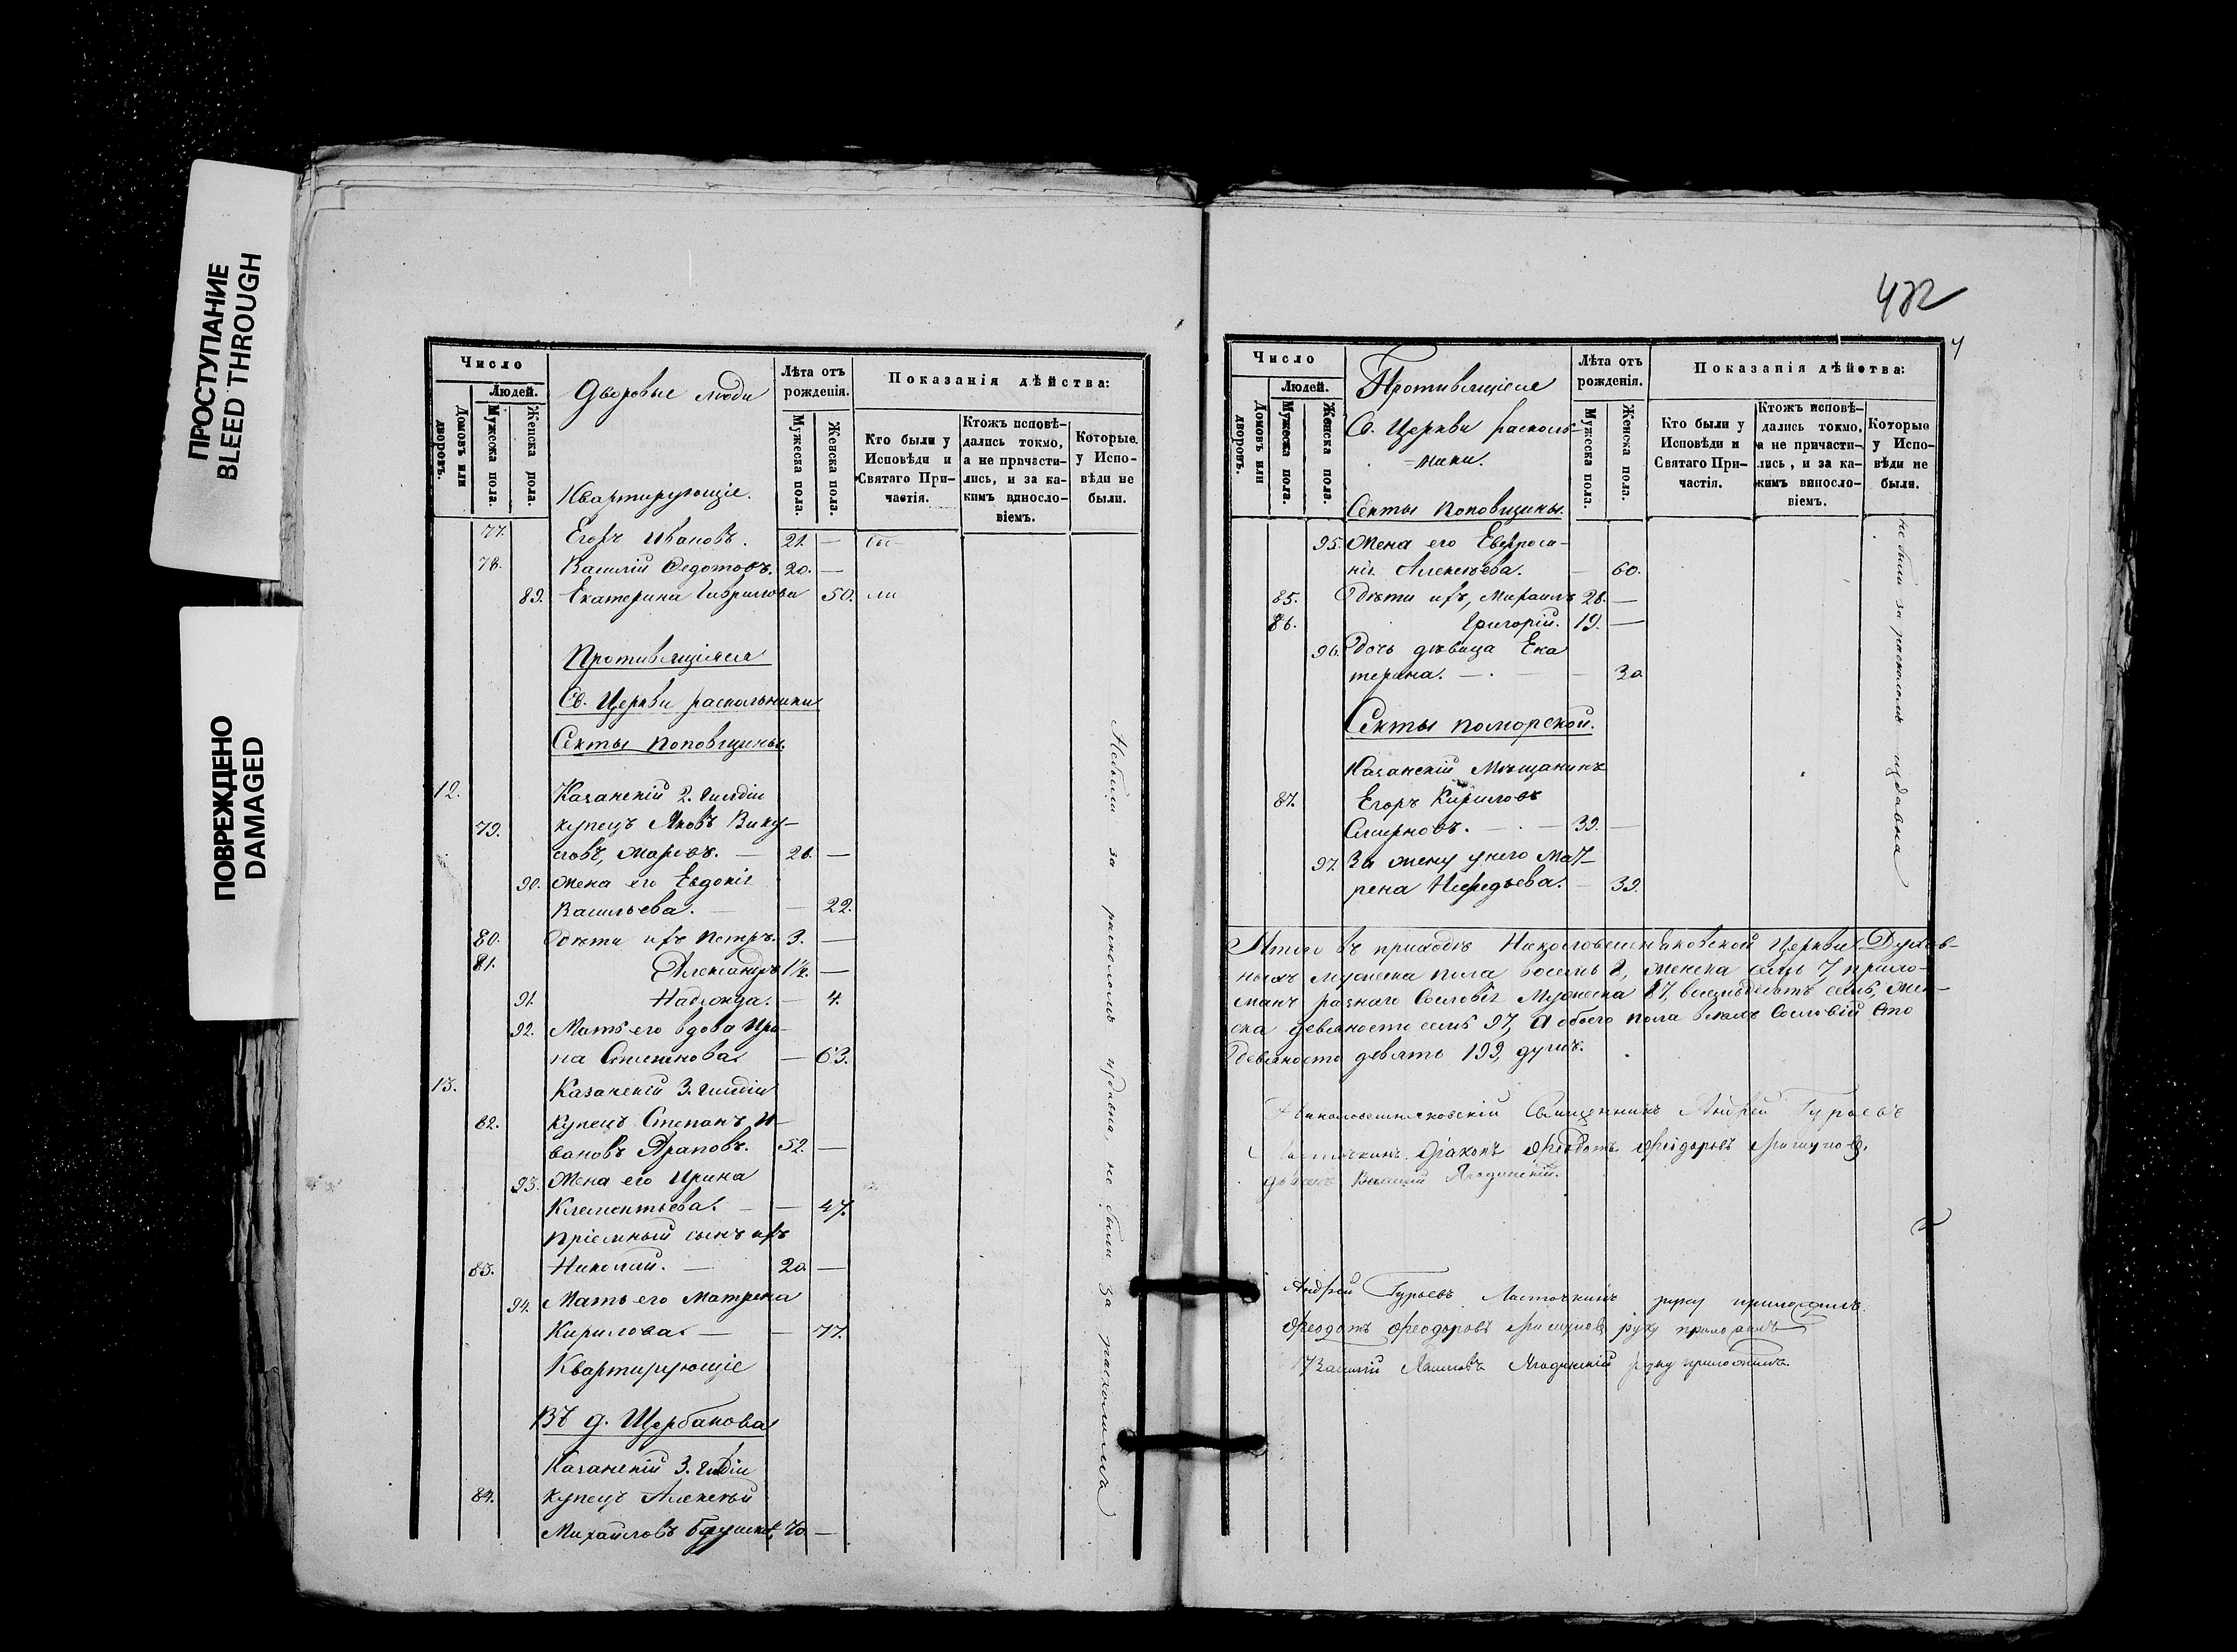 ПРОСТУПАНИЕ
BLEED THROUGH
ПОВРЕЖДЕНО
DAMAGED
Число
Людей.
Домовъ или дворовъ.
Мужеска пола.
Женска пола.
Дворовые люди
Лѣта отъ рожденія.
Мужеска пола.
Женска пола.
Показанія дѣйства:
Кто были у Исповѣди и Святаго Причастія.
Ктожъ исповѣдались токмо, а не причастились, и за какимъ винословіемъ.
Которые у Исповѣди не были.
Квартирующіе.
77. Егоръ Ивановъ. 21. — бы-
78. Василій Федотовъ. 20. —
89. Екатерина Гаврилова 50. ли
Противящіяся
Св. Церкви раскольники
Секты Поповщины.
12. Казанскій 2. гильдіи
79. купецъ Яковъ Вику-
ловъ, 26. —
90. Жена его Евдокія
Васильева. — — 22.
80. Дѣти ихъ Петръ. 3. —
81. Александръ 1½. —
91. Надежда. — 4.
92. Мать его вдова Ири-
на — 63.
13. Казанскій 3. гильдіи
82. купецъ Степанъ И-
вановъ Араповъ. 52. —
93. Жена его Ирина
Клементьева. — — 47.
Пріемный сынъ ихъ
83. Николай. — 20. —
94. Мать его Матрена
Кирилова. — — 77.
Квартирующіе
Въ д. Щербакова
Казанскій 3. гильдіи
84. купецъ Алексѣй
Михайловъ 70. —
Небыли за расколомъ издавна, не были за расколомъ
432
Число
Людей.
Домовъ или дворовъ.
Мужеска пола.
Женска пола.
Противящіеся
С. Церкви расколь-
=ники.
Секты Поповщины.
Лѣта отъ рожденія.
Мужеска пола.
Женска пола.
Показанія дѣйства:
Кто были у Исповѣди и Святаго Причастія.
Ктожъ исповѣдались токмо, а не причастились, и за какимъ винословіемъ.
Которые у Исповѣди не были.
95. Жена его Евфроси-
нія Алексѣева. — 60.
85. Дѣти ихъ, Михаилъ 28. —
86. Григорій. 19. —
96. Дочь дѣвица Ека
терина. — . — — 30.
Секты поморской.
Казанскій Мѣщанинъ
87. Егоръ Кириловъ
Смирновъ. — . — 39. —
97. За жену у него Мат-
рена Нефедьева. — 39.
не были за расколомъ издавна
Итого въ приходѣ Церкви. Духов-
ныхъ мужеска пола восемь 8, женска семь 7, прихо-
жанъ разнаго Сословія Мужеска 87, восемьдесятъ семь, жен-
ска девяносто семь 97, а обоего пола всѣхъ Сословій Сто
девяносто девять 199, душъ.
Священникъ Андрей Гурьевъ
Ласточкинъ. Діаконъ Ѳеодотъ Ѳеодоровъ
Василій Ягодинскій.
Андрей Гурьевъ Ласточкинъ руку приложилъ.
Ѳеодотъ Ѳеодоровъ руку приложилъ
Василій Ягодинскій руку приложилъ.